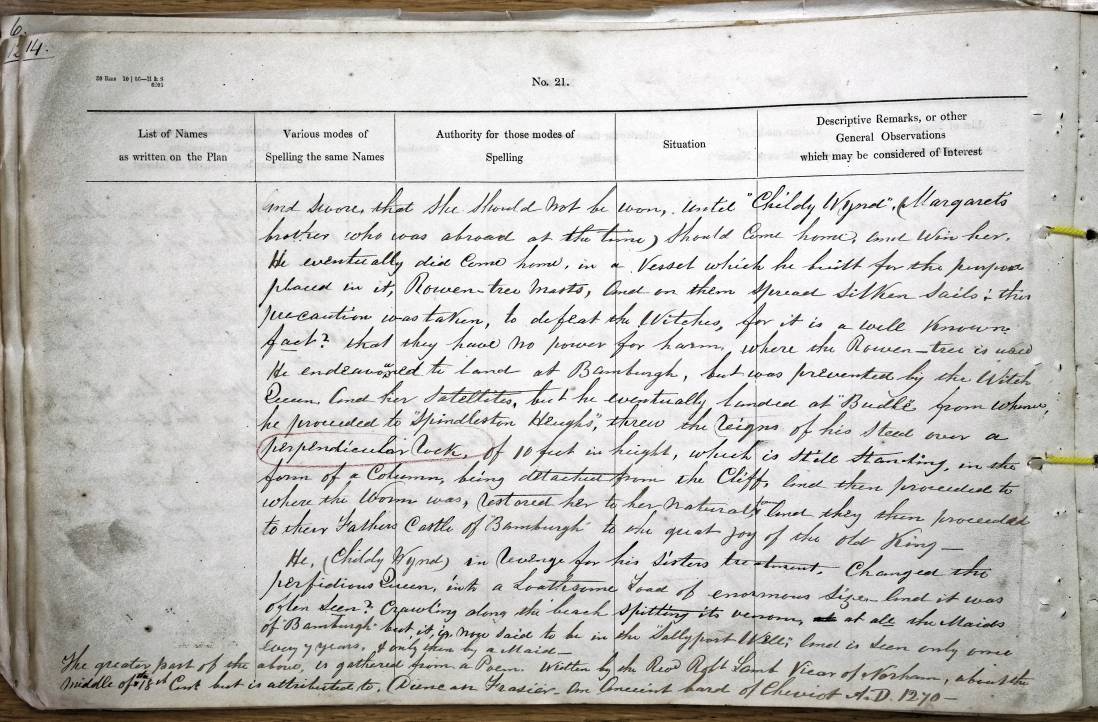 6.
1214.
No. 21.
List of Names
as written on the Plan
Various modes of
Spelling the same Names
Authority for those modes of
Spelling
Situation
Descriptive Remarks, or other
General Observations
which may be considered of Interest
and swore, that she should not be won, until "Childy Wynd", (Margarets
brother who was abroad at the time) should come home, and win her.
He eventually did come home, in a vessel which he built for the purpose
placed in it, Rowen-tree masts, and on them spread silken sails; this
precaution was taken, to defeat the Witches, for it is a well known
fact? that they have no power for harm, where the Rowen-tree is used
He endeavoured to land at Bamburgh, but was prevented by the Witch
Queen and her satellites, but he eventually landed at "Budle" from whence,
he proceeded to "Spindleston Heughs", threw the reigns of his steed over a
perpendicular rock, of 10 feet in height, which is still standing, in the
form of a Column, being detached from the Cliff, and then proceeded to
where the Worm was, restored her to her natural form and they then proceeded
to their Fathers Castle of "Bamburgh" to the great joy of the old King—
He, (Childy Wynd) in revenge for his sisters treatment changed the
perfidious Queen, into a loathsome toad of enormous size— and it was
often seen? crawling along the beach spitting its venom, at all the Maids
of Bamburgh but it is now said to be in the "Sallyport Well", and is seen only once
every 7 years, & only then by a Maid—
The greater part of the above, is gathered from a Poem. Written by the Revd Robt Lamb Vicar of Norham, about the
middle of the 18th Cent but is attributed to, Duncan Frasier. an ancient bard of Cheviot A.D. 1270—